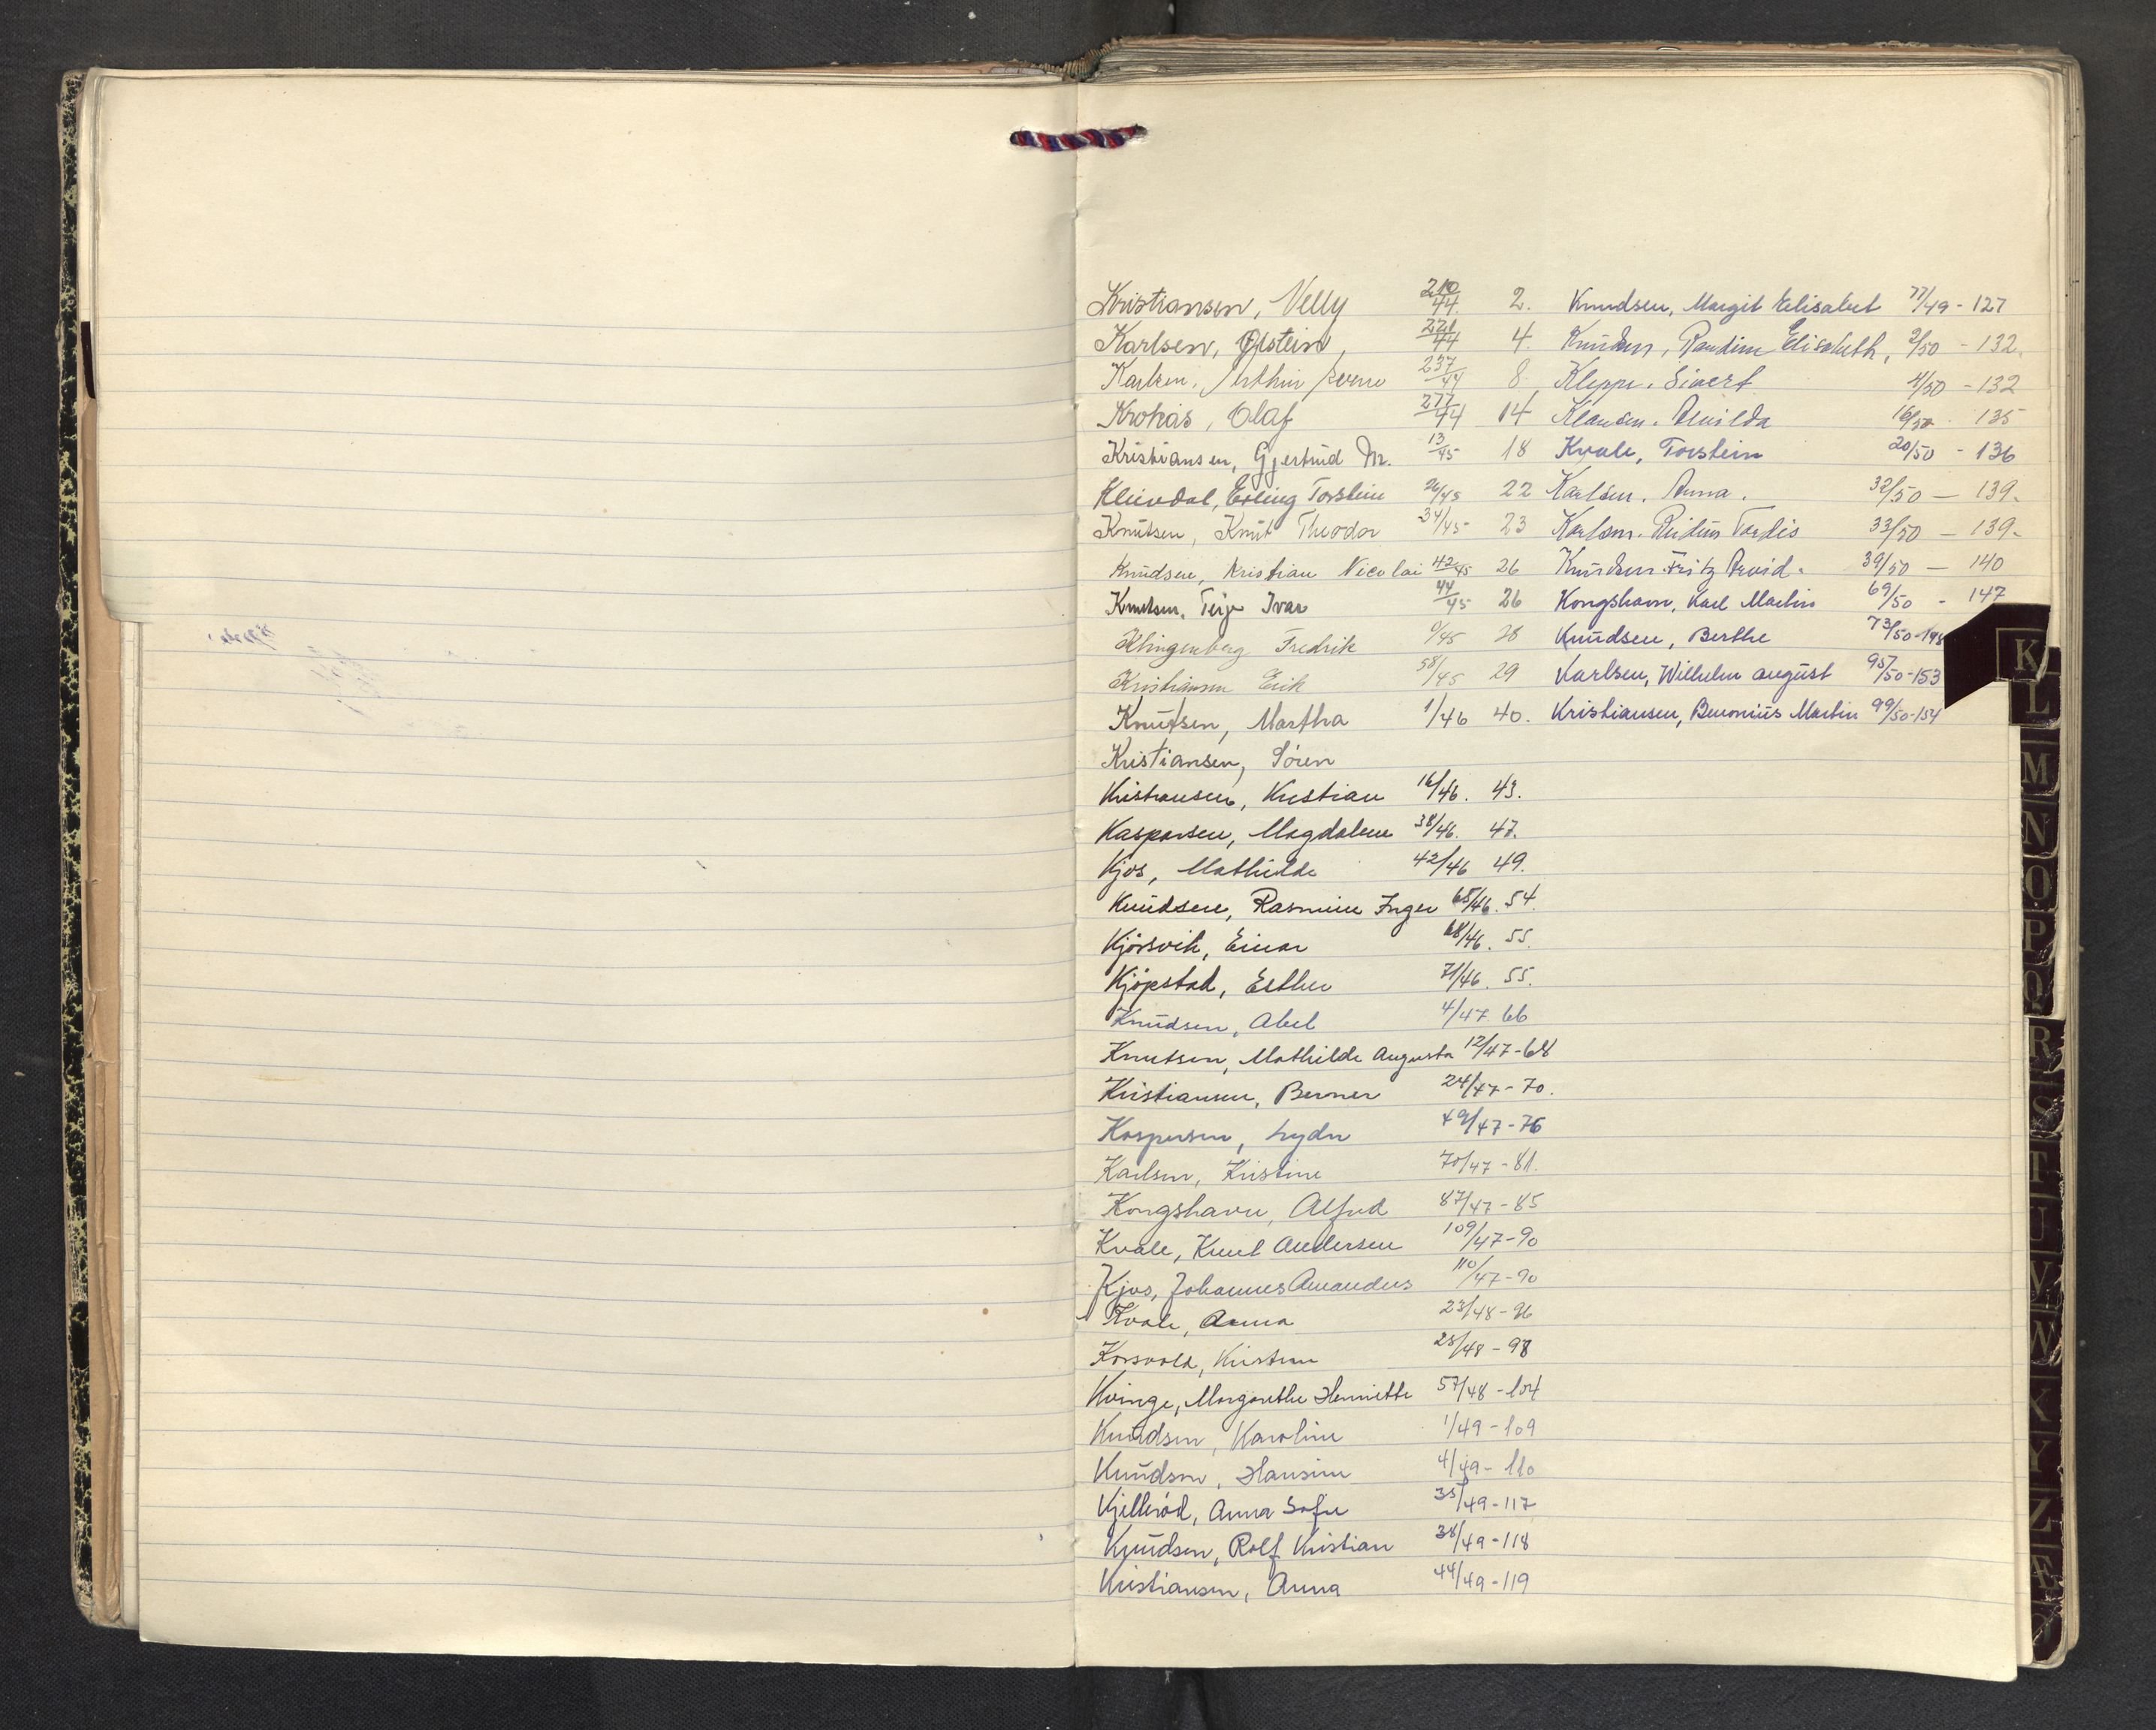 Kristiansen, Nelly 210/44. 2.
Karlsen, Øistein, 221/44 4.
Karlsen, Arthur Sverre 237/44 8
Krohås, Olaf 277/44 14
Kristiansen, Gjertrud M. 13/45 18
Kleivdal, Erling Torstein 26/45 22
Knutsen, Knut Theodor 34/45 23
Knudsen, Kristian Nicolai 42/45 26
Knutsen, Terje Ivar 44/45 26
Klingenberg Fredrik /45 28
Kristiansen Erik 58/45 29
Knutsen, Martha 1/46 40.
Kristiansen, Sören
Kristiansen, Kristian 16/46. 43.
Kaspersen, Magdalene 38/46. 47.
Kjos, Mathilde 42/46 49.
Knudsen, Rasmine Inger 65/46. 54.
Kjörsvik, Einar 68/46. 55.
Kjöpstad, Esther 71/46. 55.
Knudsen, Abel 4/47. 66
Knutsen, Mathilde Augusta 12/47-68
Kristiansen, Berner 24/47-70.
Kaspersen, Lydia 49/47-76
Karlsen, Kristine 70/47-81.
Kongshavn, Alfred 87/47-85
Kvale, Knut Andersen 109/47-90
Kjos, Johannes Amandus 110/47-90
Kvale, Anna 23/48-96
Korsvold, Kirstine 25/48-98
Kvinge, Margarethe Henriette 57/48-104
Knudsen, Karoline 1/49-109
Knudsen, Hansine 4/49-110
Kjelleröd, Anna Sofie 35/49-117
Knudsen, Rolf Kristian 38/49-118
Kristiansen, Anna 44/49-119
Knudsen, Margit Elisabet 77/49-127
Knudsen, Randine Elisabeth, 2/50-132.
Kleppe, Sivert 4/50-132
Klausen. Alvilda 16/50. 135
Kvale, Torstein 20/50-136
Karlsen. Anna. 32/50-139.
Karlsen. Reidun Tordis 33/50-139.
Knudsen Fritz Arvid. 39/50-140
Kongshavn, Karl Martin 69/50-147
Knudsen, Berthe 73/50-148
Karlsen, Wilhelm August 95/50-153
Kristiansen, Beronius Martin 99/50-154
K
L
M
N
O
P
Q
R
S
T
U
V
W
X
Y
Z
Æ
Ø